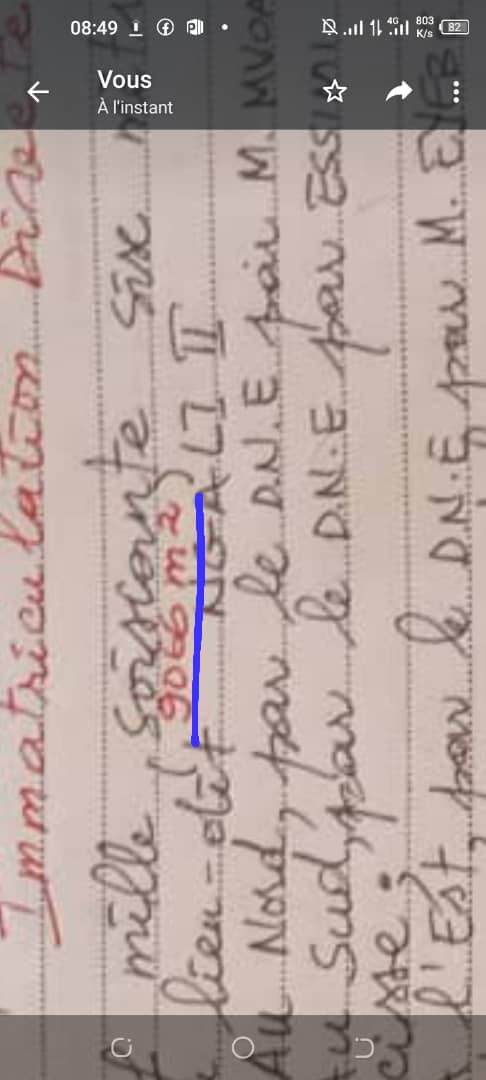 08:49
4G
803 K/s
82
Vous
À l'instant
Immatriculation Directe
mille soixante six
(9066 m2)
lieu-dit NGALI II
Au Nord, par le D.N.E par M. MVOA
Au Sud, par le D.N.E par
cisse;
l'Est, par le D.N.E par M.